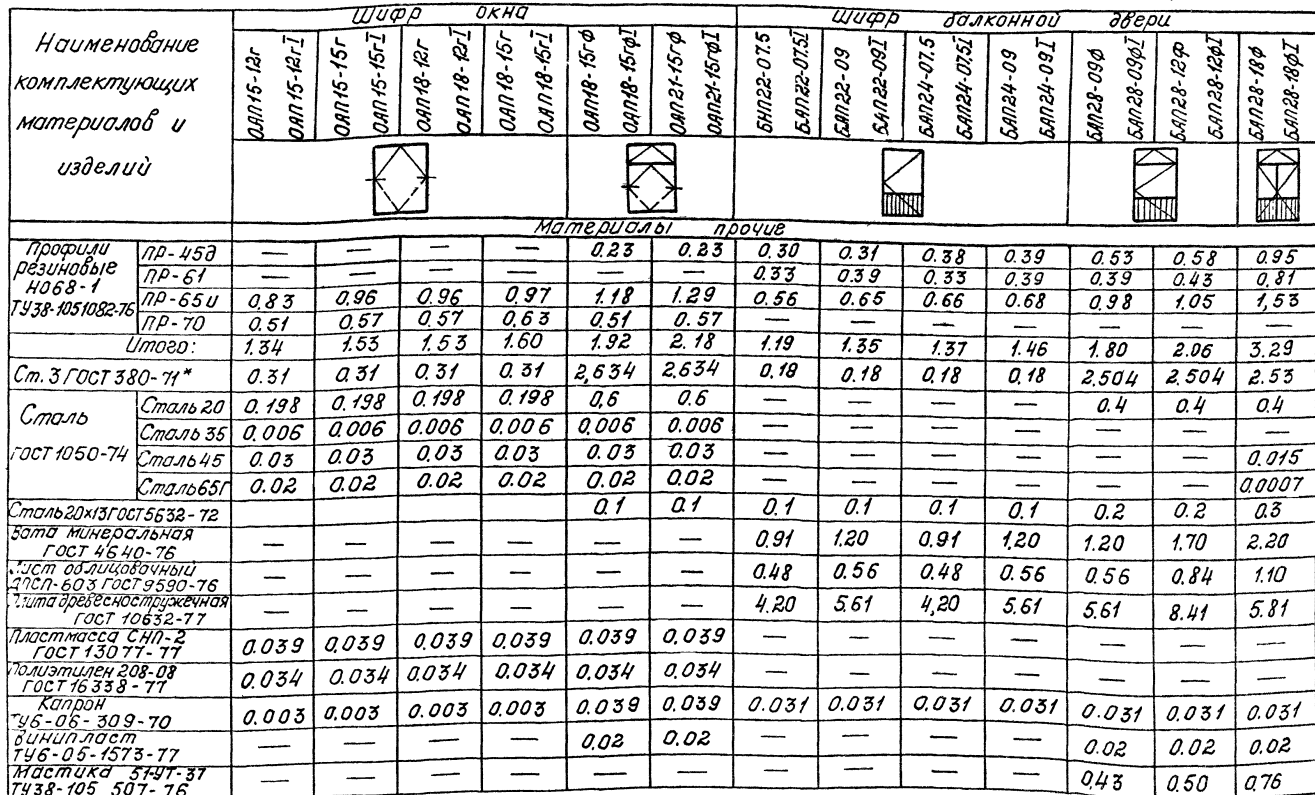 Наименование комплектующих материалов и изделий | Шифр окна | Шифр балконной двери
ОАП15-12г ОАП15-12гI | ОАП15-15г ОАП15-15гI | ОАП18-12г ОАП18-12гI | ОАП18-15г ОАП18-15гI | ОАП18-15гф ОАП18-15гфI | ОАП21-15гф ОАП21-15гфI | БНП22-07.5 БАП22-07.5I | БАП22-09 БАП22-09I | БАП24-07.5 БАП24-07.5I | БАП24-09 БАП24-09I | БАП28-09ф БАП28-09фI | БАП28-12ф БАП28-12фI | БАП28-18ф БАП28-18фI
Материалы прочие
Профили резиновые НО68-1 ТУ38-1051082-76
ПР-45д | — | — | — | — | 0.23 | 0.23 | 0.30 | 0.31 | 0.38 | 0.39 | 0.53 | 0.58 | 0.95
ПР-61 | — | — | — | — | — | — | 0.33 | 0.39 | 0.33 | 0.39 | 0.39 | 0.43 | 0,81
ПР-65и | 0.83 | 0.96 | 0.96 | 0,97 | 1.18 | 1.29 | 0.56 | 0.65 | 0.66 | 0.68 | 0.98 | 1.05 | 1,53
ПР-70 | 0.51 | 0.57 | 0.57 | 0.63 | 0.51 | 0.57 | — | — | — | — | — | — | —
Итого: | 1.34 | 1.53 | 1.53 | 1.60 | 1.92 | 2.18 | 1.19 | 1.35 | 1.37 | 1.46 | 1.80 | 2.06 | 3.29
Ст. 3 ГОСТ 380-71* | 0.31 | 0.31 | 0.31 | 0.31 | 2,634 | 2.634 | 0.18 | 0.18 | 0.18 | 0.18 | 2.504 | 2.504 | 2.53
Сталь ГОСТ 1050-74
Сталь 20 | 0.198 | 0.198 | 0.198 | 0.198 | 0,6 | 0.6 | — | — | — | — | 0.4 | 0.4 | 0.4
Сталь 35 | 0.006 | 0.006 | 0.006 | 0.006 | 0,006 | 0.006 | — | — | — | — | — | — | —
Сталь 45 | 0.03 | 0.03 | 0.03 | 0.03 | 0.03 | 0.03 | — | — | — | — | — | — | 0.015
Сталь 65Г | 0.02 | 0.02 | 0.02 | 0.02 | 0.02 | 0.02 | — | — | — | — | — | — | 0,0007
Сталь 20х13 ГОСТ 5632-72 | 0.1 | 0.1 | 0.1 | 0.1 | 0.1 | 0.1 | 0.2 | 0.2 | 0.3
Вата минеральная ГОСТ 4640-76 | — | — | — | — | — | — | 0.91 | 1.20 | 0.91 | 1,20 | 1.20 | 1.70 | 2.20
Лист облицовочный ДПСП-603 ГОСТ 9590-76 | — | — | — | — | — | — | 0.48 | 0.56 | 0.48 | 0.56 | 0.56 | 0.84 | 1.10
Плита древесностружечная ГОСТ 10632-77 | — | — | — | — | — | — | 4.20 | 5.61 | 4,20 | 5.61 | 5.61 | 8.41 | 5.81
Пластмасса СНП-2 ГОСТ 13077-77 | 0.039 | 0,039 | 0.039 | 0.039 | 0.039 | 0,039 | — | — | — | — | — | — | —
Полиэтилен 208-08 ГОСТ 16338-77 | 0.034 | 0.034 | 0.034 | 0.034 | 0,034 | 0.034 | — | — | — | — | — | — | —
Капрон ТУ6-06-309-70 | 0.003 | 0.003 | 0.003 | 0.003 | 0.039 | 0.039 | 0.031 | 0.031 | 0.031 | 0.031 | 0.031 | 0.031 | 0.031
Винипласт ТУ6-05-1573-77 | — | — | — | — | 0.02 | 0.02 | — | — | — | — | 0.02 | 0.02 | 0.02
Мастика 51-УТ-37 ТУ38-105 507-76 | — | — | — | — | — | — | — | — | — | — | 0,43 | 0.50 | 0.76